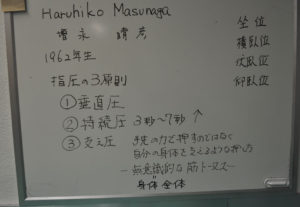 Haruhiko Masunaga
増永 晴彦
1962年生
指圧の3原則
①垂直圧
②持続圧 3秒〜7秒 ↑
③支え圧 手先の力で押すのではなく
自分の身体を支えるような押し方
無意識的な筋トーヌス
身体全体
坐位
横臥位
伏臥位
仰臥位